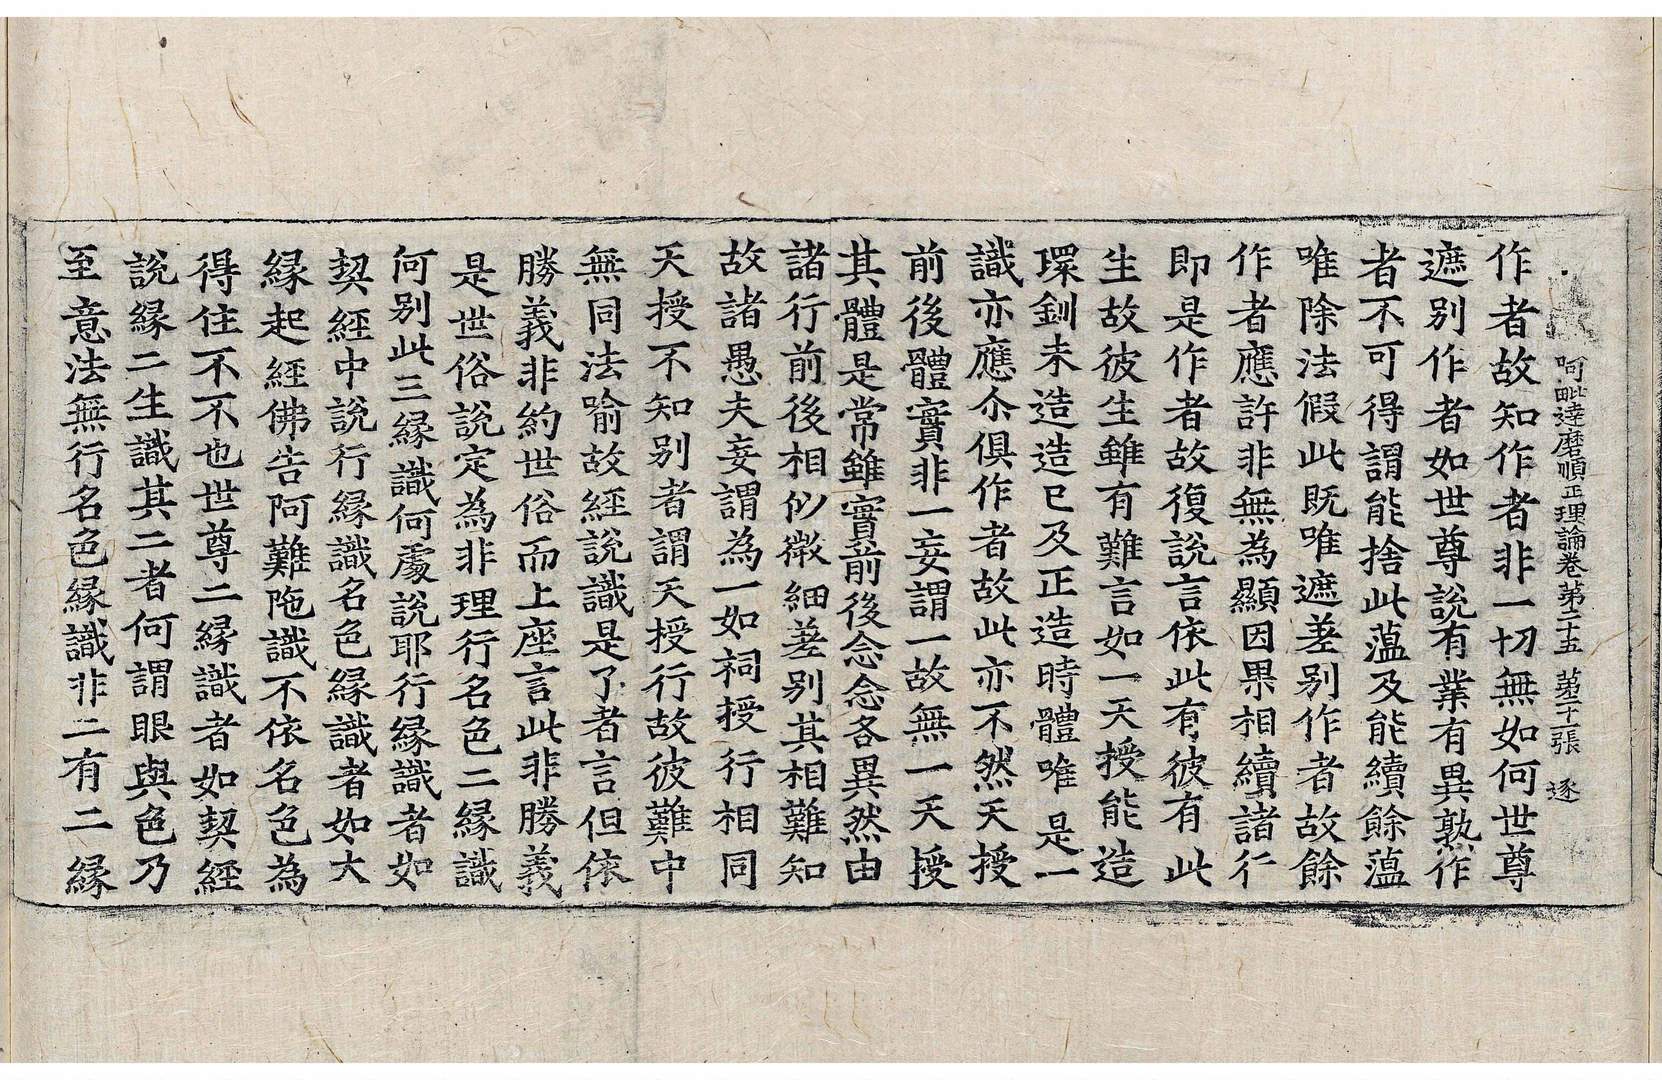 阿毗達磨順正理論卷苐二十五 苐十二張 逐
作者故知作者非一切無如何世尊
遮別作者如世尊說有業有異熟作
者不可得謂能捨此薀及能續餘薀
唯除法假此既唯遮差別作者故餘
作者應許非無為顯因果相續諸行
即是作者故復說言依此有彼有此
生故彼生雖有難言如一天授能造
環釧未造造已及正造時體唯是一
識亦應尒俱作者故此亦不然天授
前後體實非一妄謂一故無一天授
其體是常雖實前後念念各異然由
諸行前後相似微細差別其相難知
故諸愚夫妄謂為一如祠授行相同
天授不知別者謂天授行故彼難中
無同法喻故經說識是了者言但依
勝義非約世俗而上座言此非勝義
是世俗說定為非理行名色二緣識
何別此三緣識何處說耶行緣識者如
契經中說行緣識名色緣識者如大
緣起經佛告阿難陁識不依名色為
得住不不也世尊二緣識者如契經
說緣二生識其二者何謂眼與色乃
至意法無行名色緣識非二有二緣